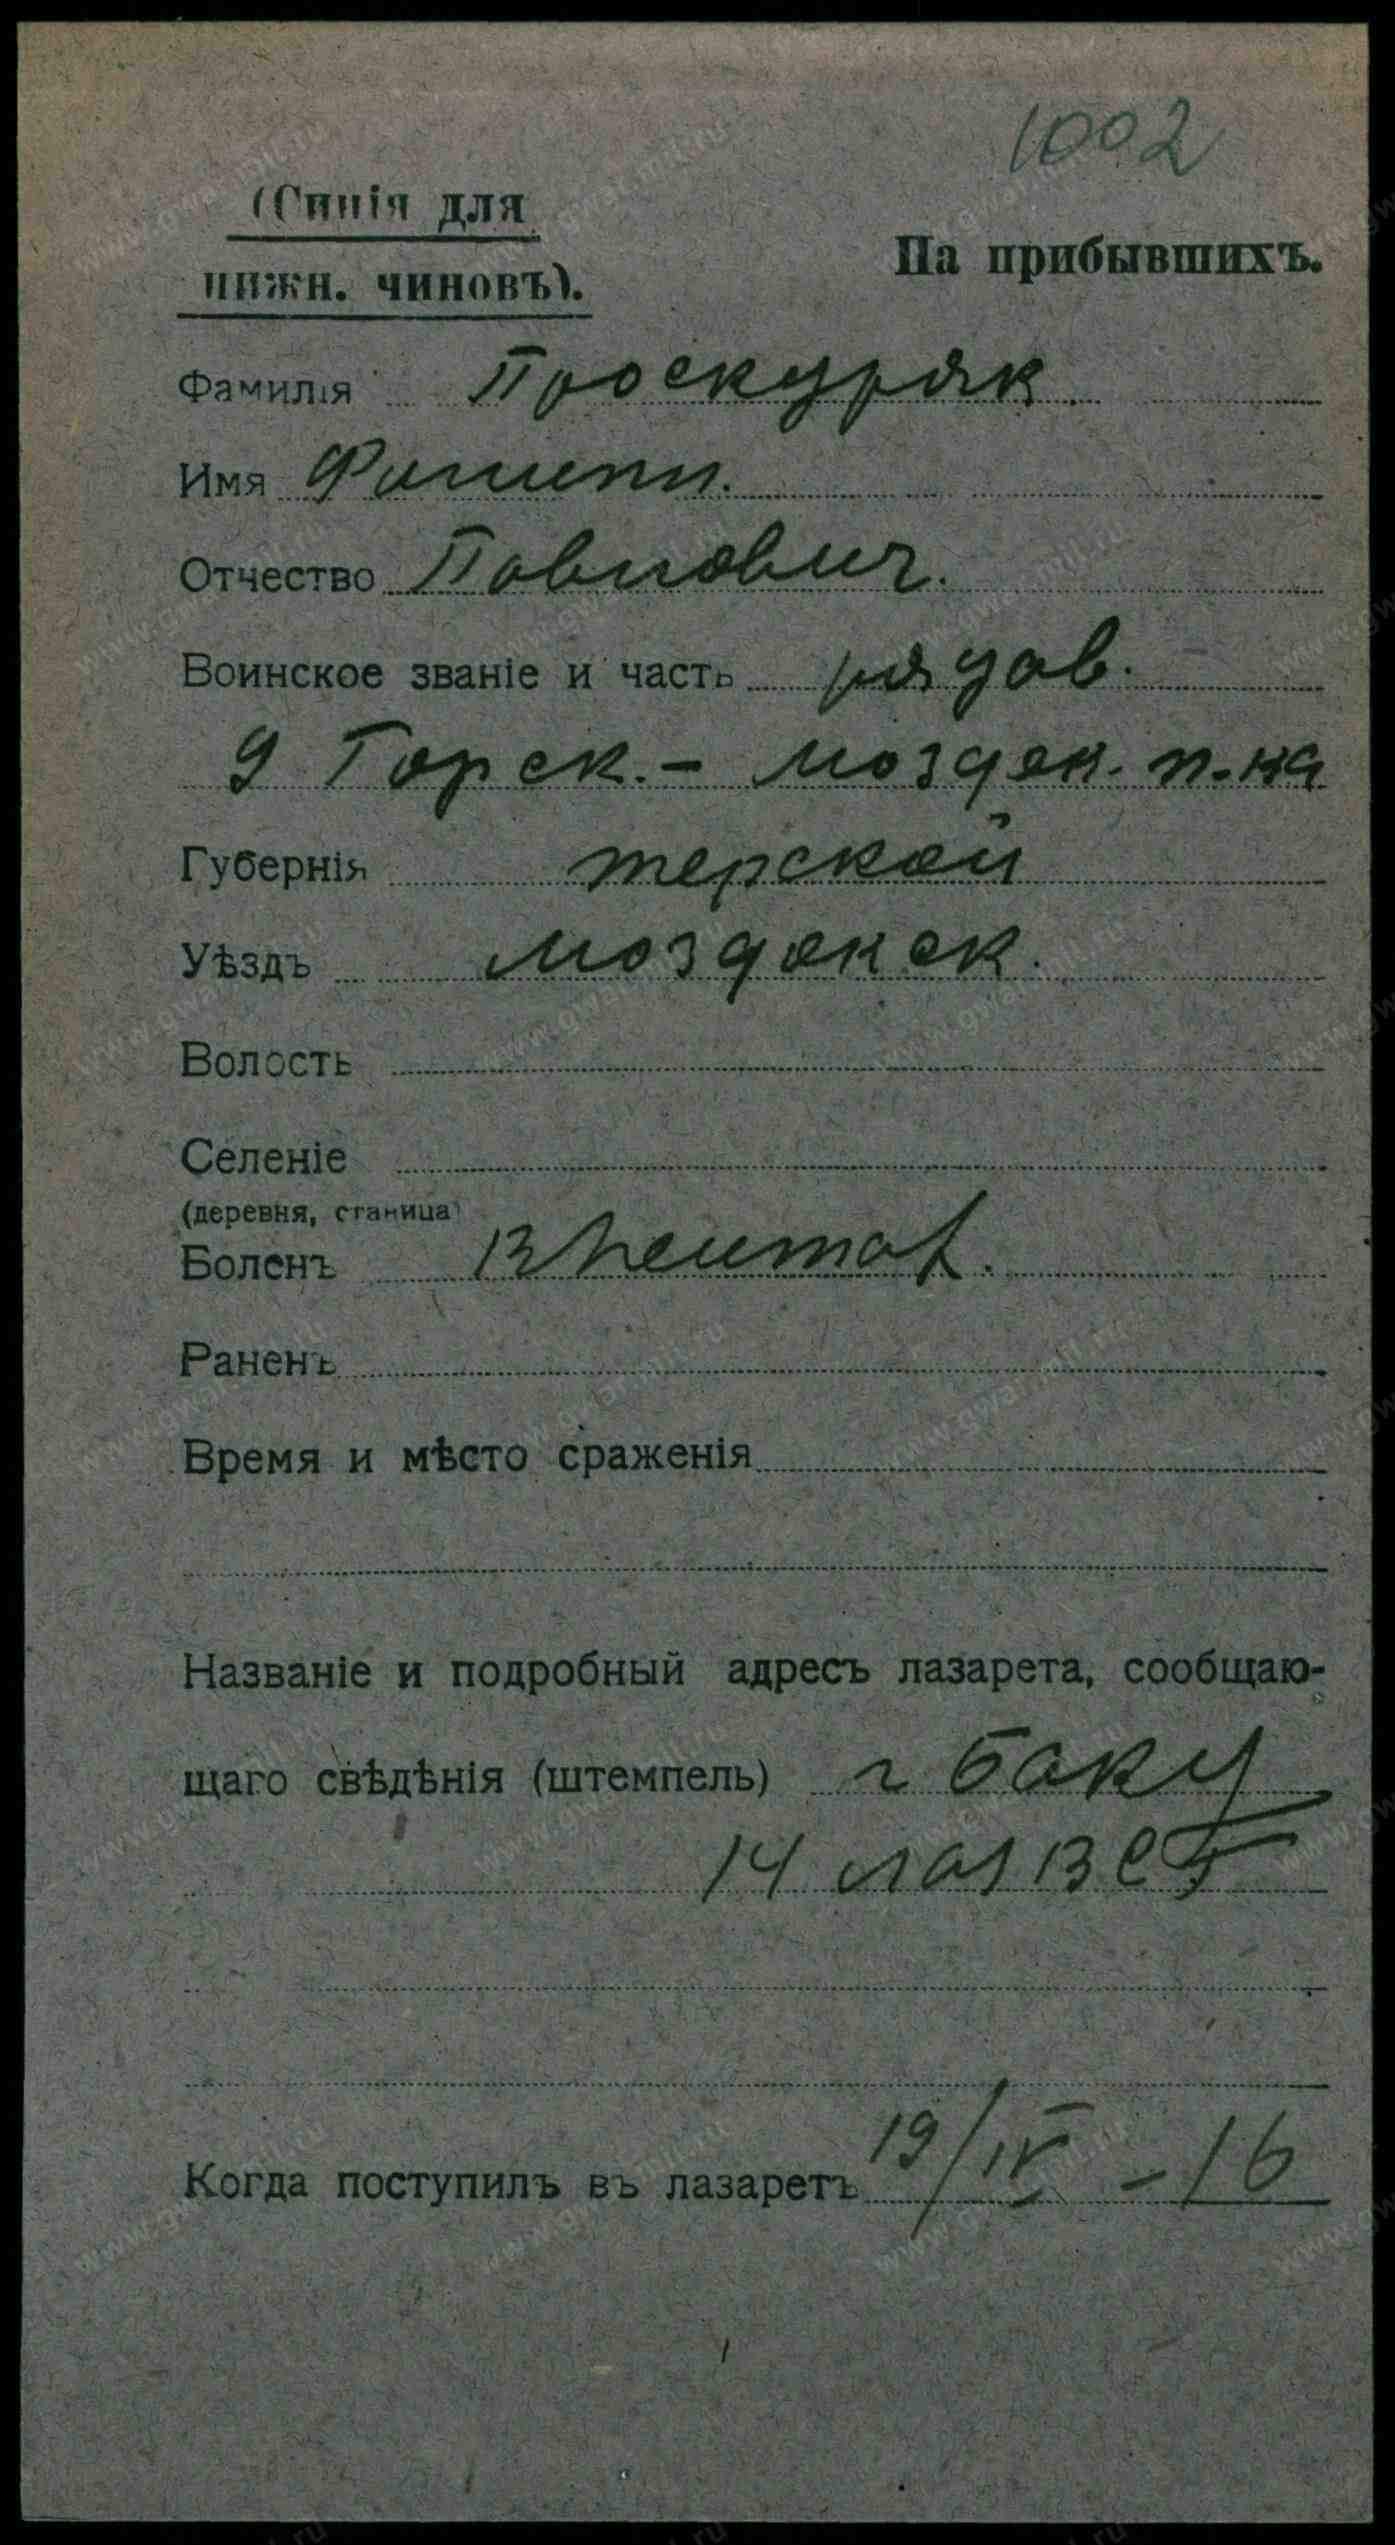 1002
(Синія для
нижн. чиновъ).
На прибывшихъ.
Фамилія Проскуряк
Имя Филипп.
Отчество Павлович.
Воинское званіе и часть рядов.
9 Горск.- Моздок. п.ка
Губернія терской
Уѣздъ моздокск.
Волость
Селеніе
(деревня, станица)
Боленъ
Раненъ
Время и мѣсто сраженія
Названіе и подробный адресъ лазарета, сообщаю-
щаго свѣдѣнія (штемпель) г Баку
14 лаз ВСГ
Когда поступилъ въ лазаретъ 19/IV - 16